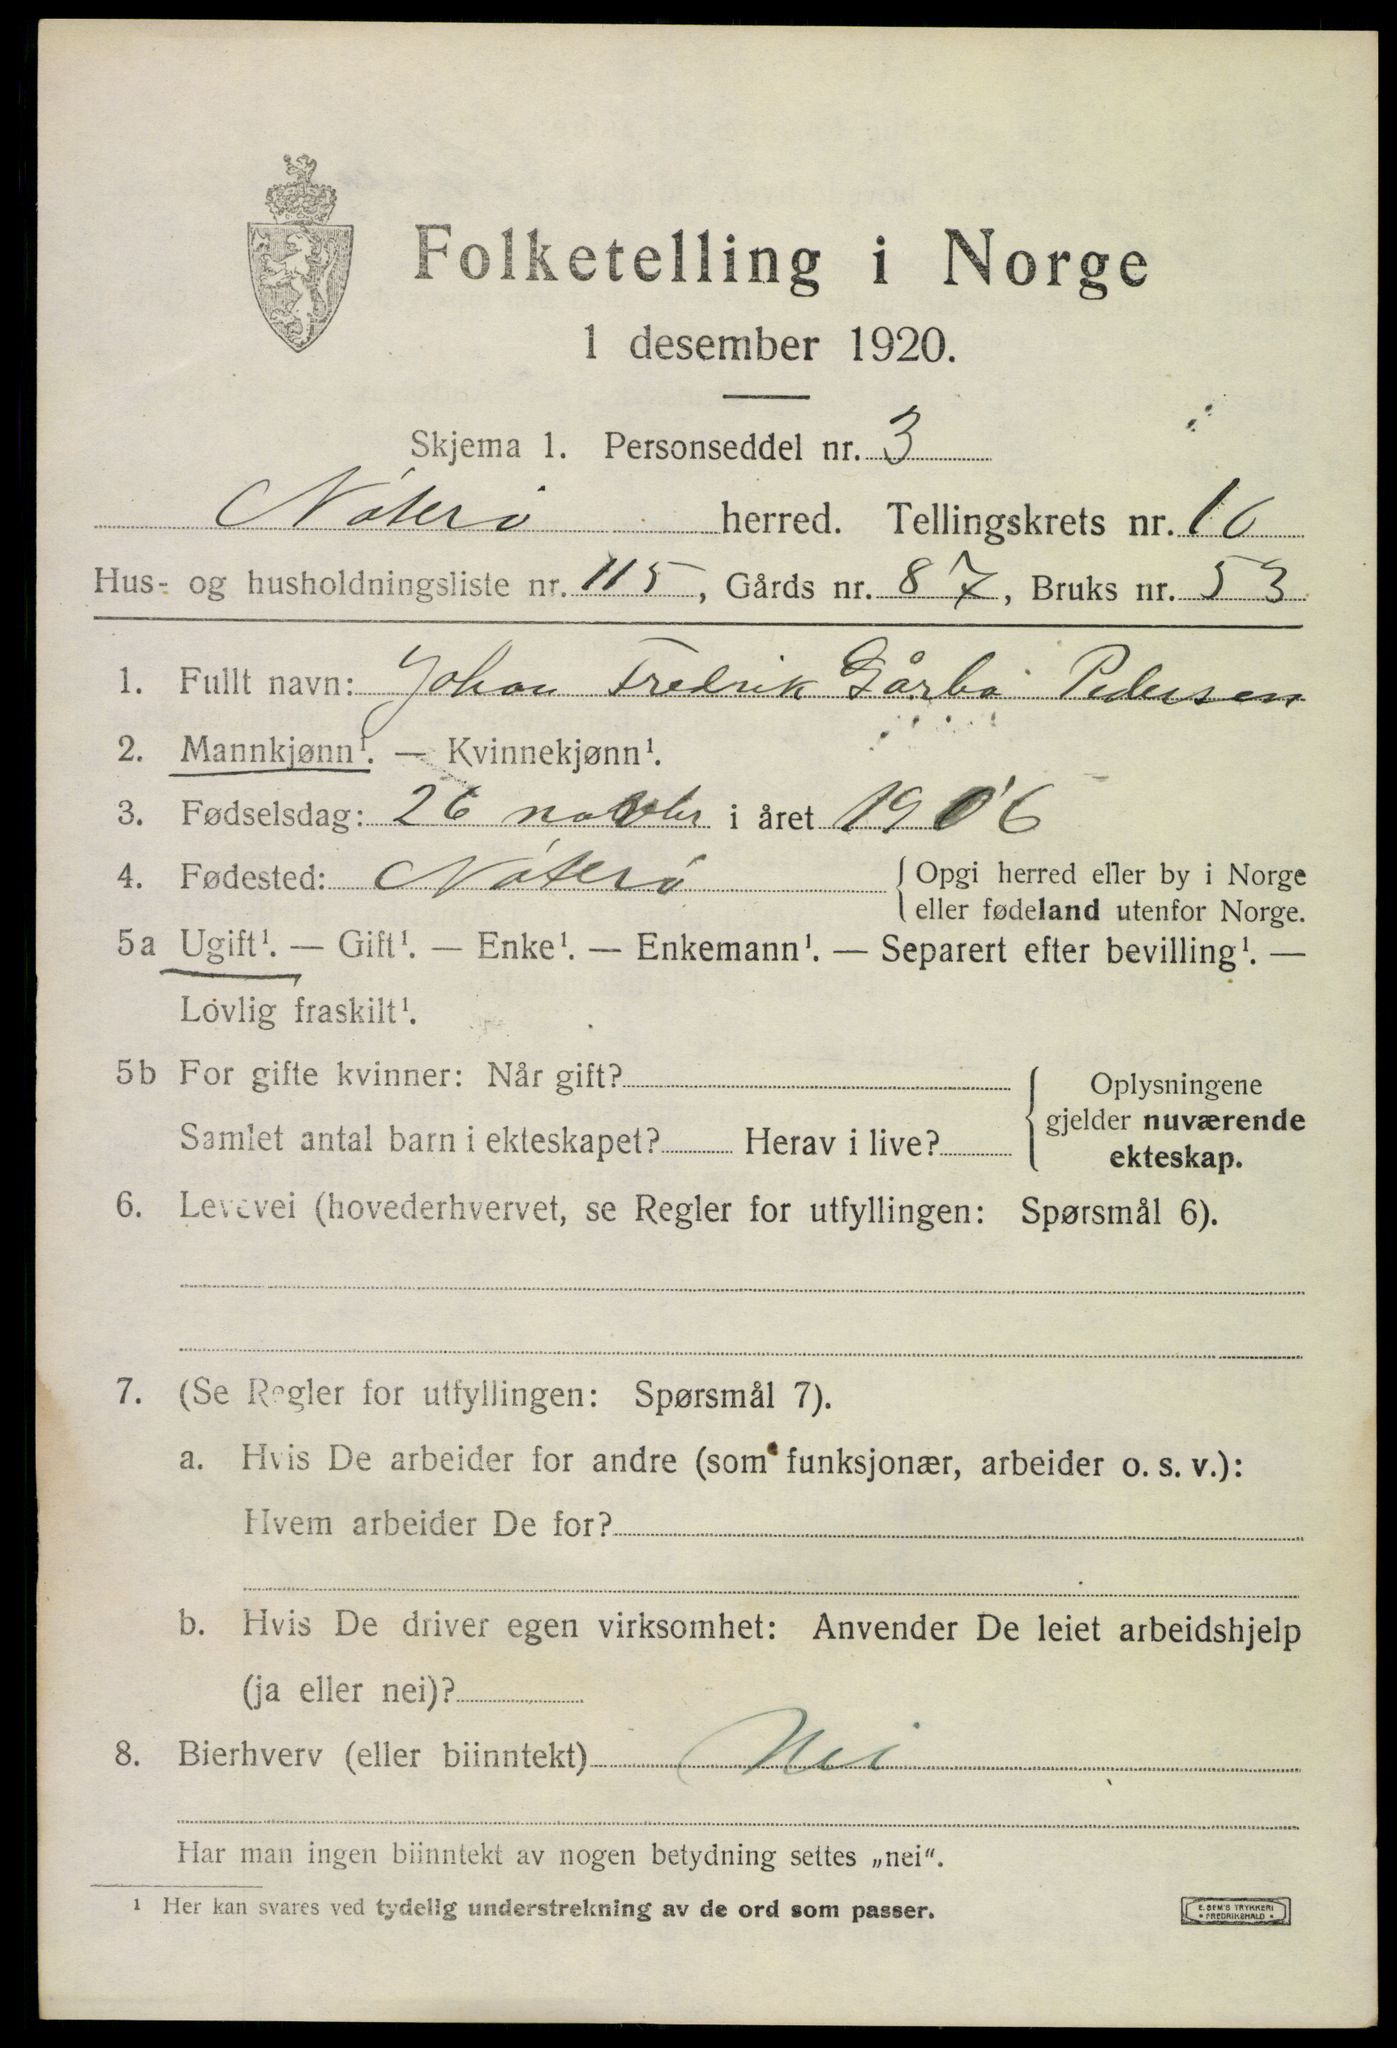 Folketelling i Norge
1 desember 1920.
Skjema 1. Personseddel nr. 3
Nøterø herred. Tellingskrets nr. 10
Hus- og husholdningsliste nr. 115, Gårds nr. 87, Bruks nr. 53
1. Fullt navn: Johan Fredrik Gårbo Pedersen
2. Mannkjønn¹. — Kvinnekjønn¹.
3. Fødselsdag: 26 novbr i året 1906
4. Fødested: Nøterø { Opgi herred eller by i Norge
eller fødeland utenfor Norge.
5a Ugift¹. — Gift¹. — Enke¹. — Enkemann¹. — Separert efter bevilling¹. —
Lovlig fraskilt¹.
5b For gifte kvinner: Når gift?
Samlet antal barn i ekteskapet? Herav i live?
{ Oplysningene
gjelder nuværende
ekteskap.
6. Levevei (hovederhvervet, se Regler for utfyllingen: Spørsmål 6).
7. (Se Regler for utfyllingen: Spørsmål 7).
a. Hvis De arbeider for andre (som funksjonær, arbeider o. s. v.):
Hvem arbeider De for?
b. Hvis De driver egen virksomhet: Anvender De leiet arbeidshjelp
(ja eller nei)?
8. Bierhverv (eller biinntekt) Nei
Har man ingen biinntekt av nogen betydning settes „nei“.
¹ Her kan svares ved tydelig understrekning av de ord som passer.
E. SEM'S TRYKKERI
• FREDRIKSHALD •